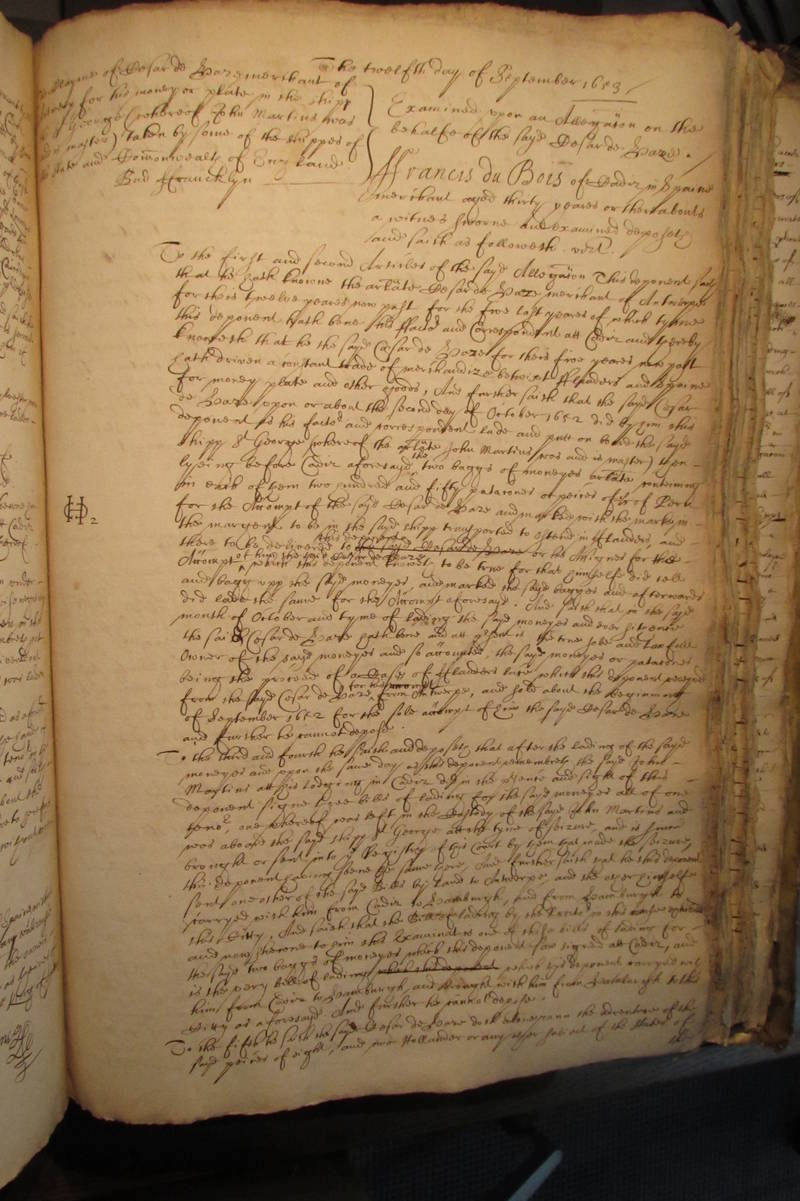 The twelfth day of September 1653 /
Clayme of Cesar de Baze merchant of
for his money or plate in the shipp
George (whereof John Martins was
master) taken by some of the shippes of
and Commonwealth of England
Bud ffrancklyn
Examined upon an Allegation on the
behalfe of the sayd Cesar de Baze.
ffrancis du Bois of Cadiz in Spaine
merchant aged thirty yeares or thereabouts
a witnes sworne and examined deposeth
and saith as followeth. vizt.
To the first and second Articles of the sayd Allegation This deponent saith
that he hath knowne the arlate Cesar de Baze merchant of Antwerpe
for theis twelve yeares now past for the five last yeares of which tyme
this deponent hath bene his ffactor and Correspondent att Cadiz and thereby
knoweth that he the sayd Cesar de Baze for theis five yeares now past
hath driven a constant trade of merchandize betwixt fflanders and Spaine
for money plate and other goods, And further saith that the sayd Cesar
de Baze upon or about the second day of October 1652 did by him this
deponent as his factor and correspondent lade and putt on board the sayd
shipp St George (whereof the arlate John Martins was and is master) then
lyeing before Cadiz aforesayd the two baggs of moneyes arlate conteining
in each of them two hundred and fifty patacones or peices of 8/8 of Peru
for the Accompt of the sayd Cesar de Baze and marked with the marke in
the margent to be in the sayd shipp transported to Ostend in fflanders, and
there to be delivered to this deponent the sayd Cesar de Baze or his Assignes for the
Accompt of him the said Cesar de Baze which this deponent knoweth to be true for that himselfe did tell
and bagg upp the sayd moneyes, and marked the sayd baggs and afterwards
did lade the same for the Accompt aforesayd. And saith that in the sayd
month of October and tyme of lading the sayd moneyes and ever hitherto
the said Cesar de Baze hath bene and att present is the true sole and lawfull
Owner of the sayd moneyes and so accompted, the sayd moneyes or patacones
being the proceed of a Chase of fflanders lace which this deponent received
from the sayd Cesar de Baze from Antwerpe, and sold about the beginning
of September 1652 for the sole accompt of him the sayd Cesar de Baze
and further he cannot depose.
To the third and fourth he saith and deposeth that after the lading of the sayd
moneyes and upon the same day as this deponent remembreth the sayd John
Martins att his lodging in Cadiz did in the presence and sight of this
deponent signe three bills of lading for the sayd moneyes all of one
tenor, one whereof was left in the Custody of the sayd John Martins and
was aboard the sayd shipp St George att the tyme of seizure, and is since
brought or sent into the Registry of this Court by them that made the seizure,
this deponent having seene the same here, And further saith that he this deponent
sent one other of the sayd bills by land to Antwerpe and the other himselfe
carryed with him from Cadiz to Hamburgh, and from Hamburgh to
this Citty, And saith that the bill of lading by the
and now shewne to him this Examinate is one of those bills of lading for
the sayd two baggs of moneyes which this deponent saw signed att Cadiz, and
is the very bill of lading which this deponent which this deponent carryed with
him from Cadiz to Hamburgh, and brought with him from Hamburgh to this
Citty as aforesayd. And further he cannot depose.
To the fifth he saith the sayd Cesar de Baze doth alone runn the adventure of the
sayd peices of eight, and noe Hollander or any other subject of the States of
the
2